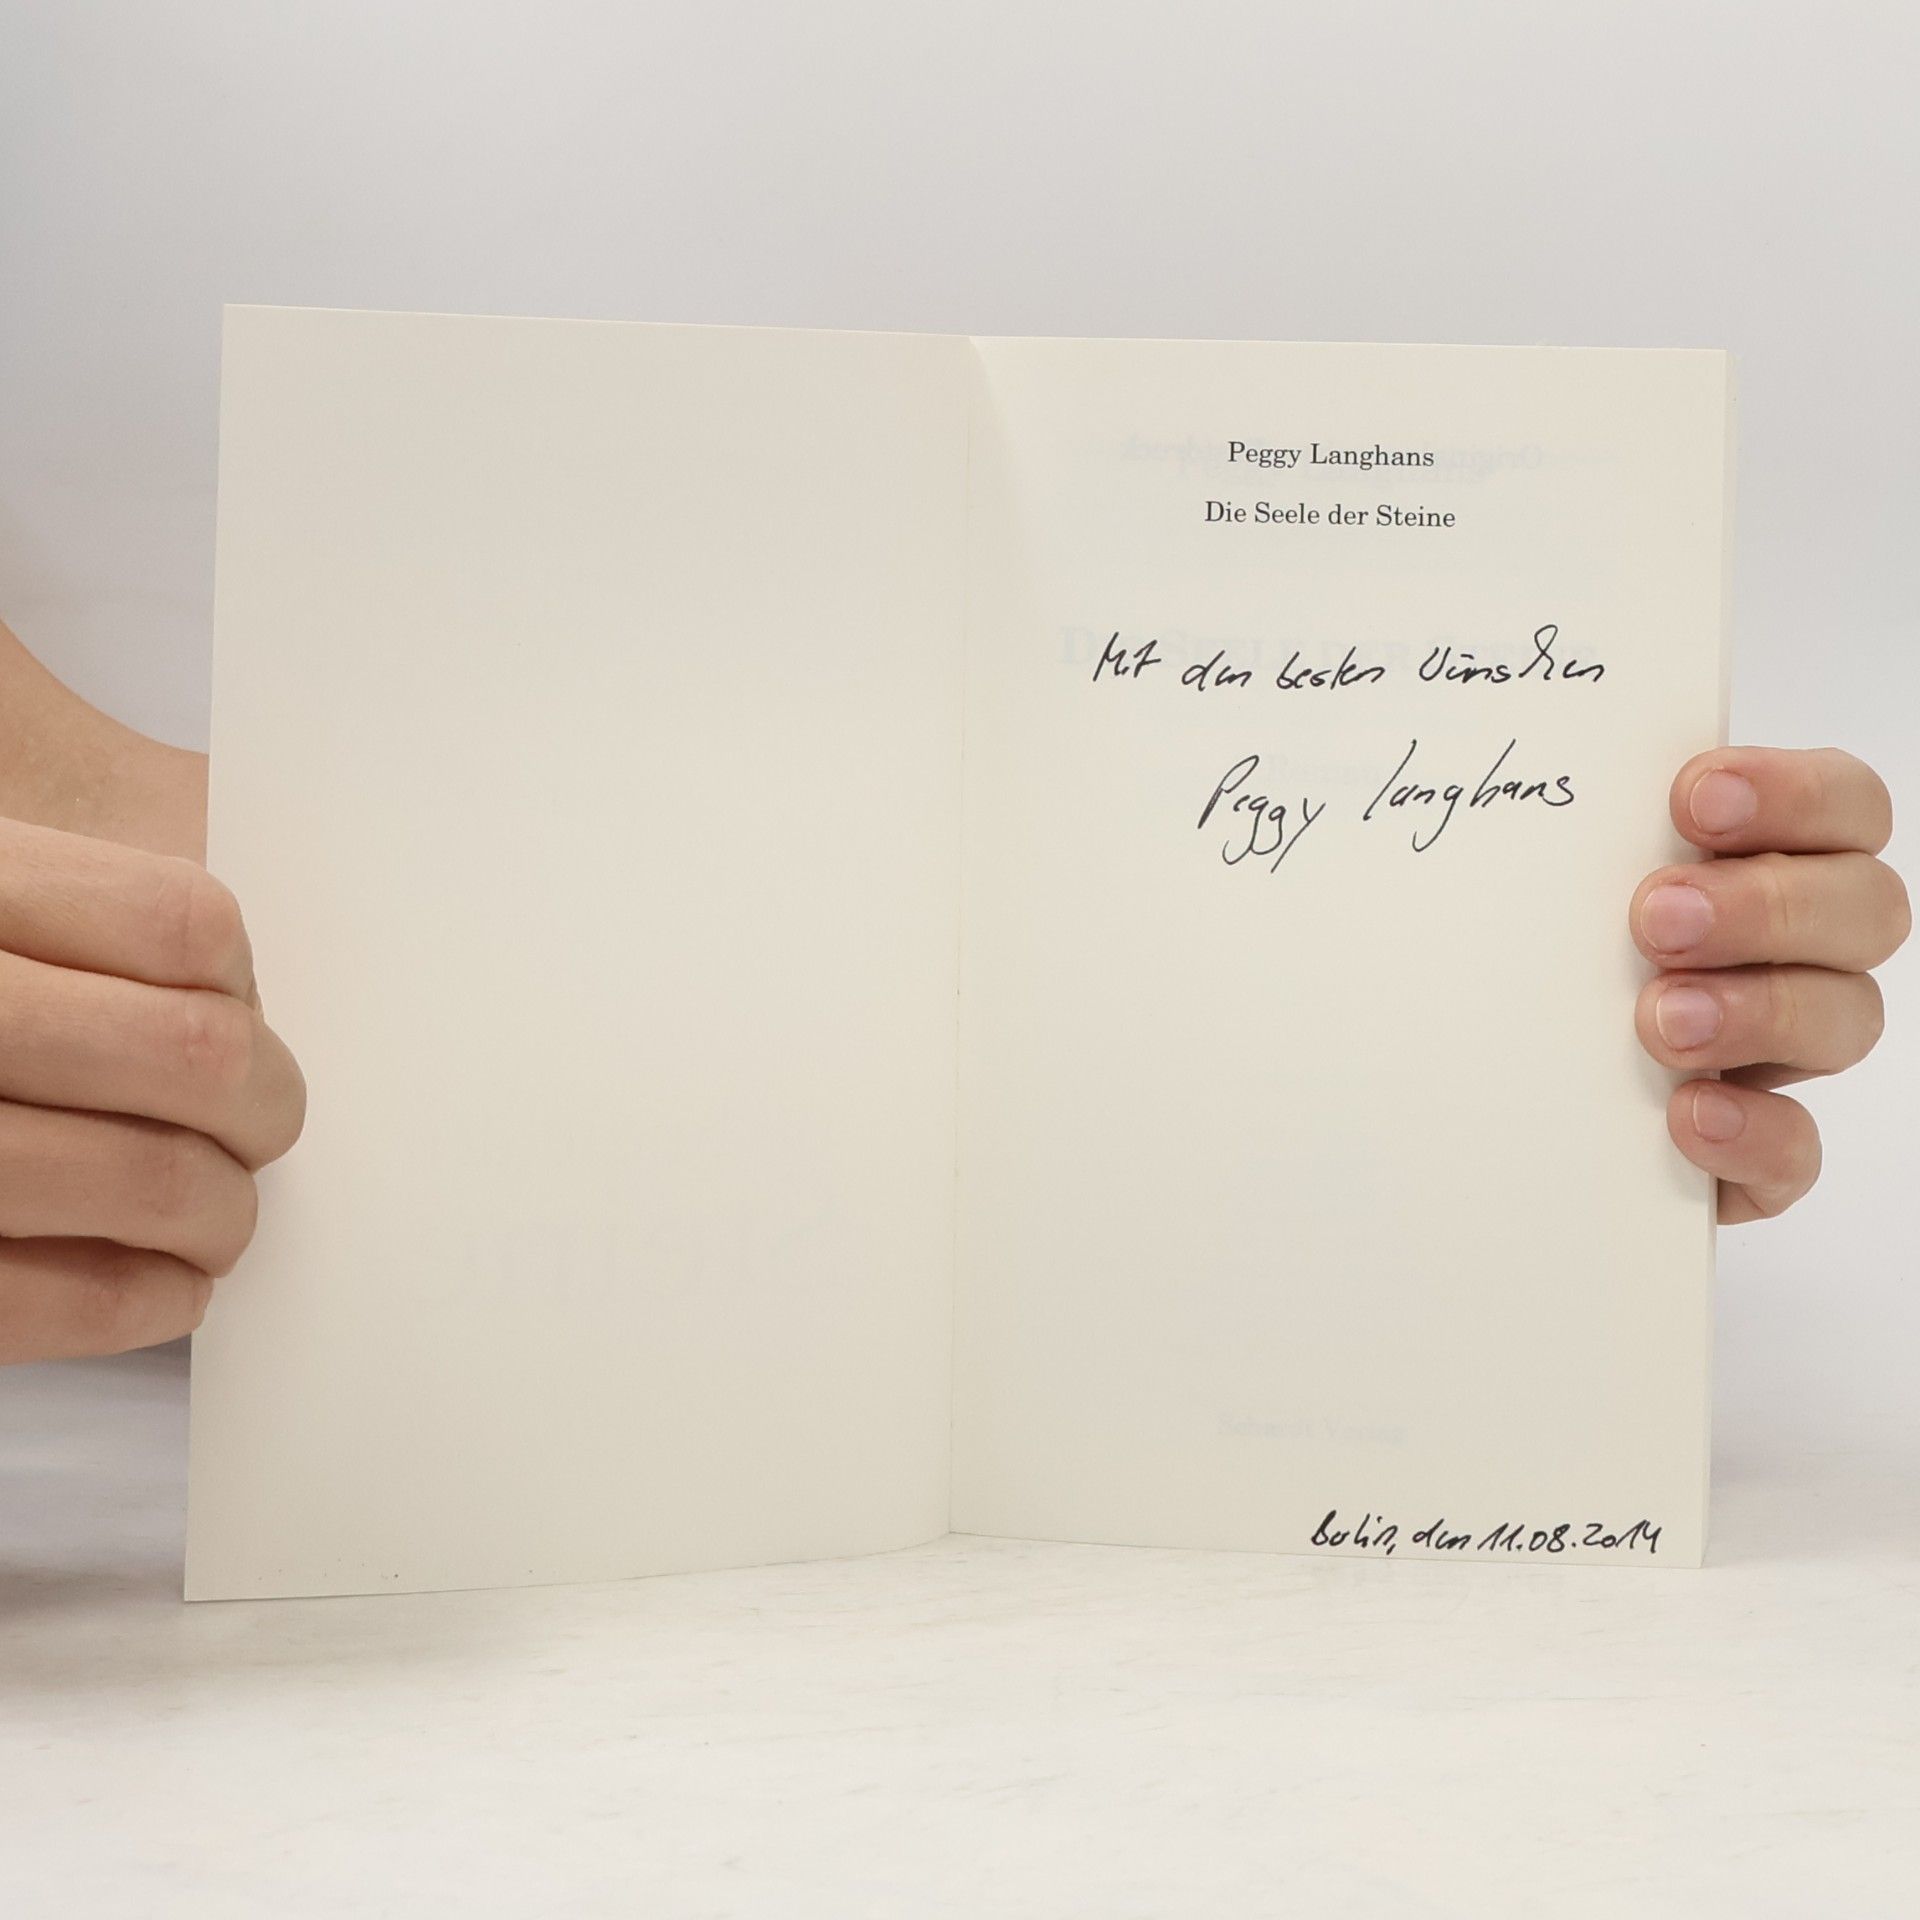 Peggy Langhans
Die Seele der Steine
Mit den besten Wünschen
Peggy Langhans
Berlin, den 11.08.2014